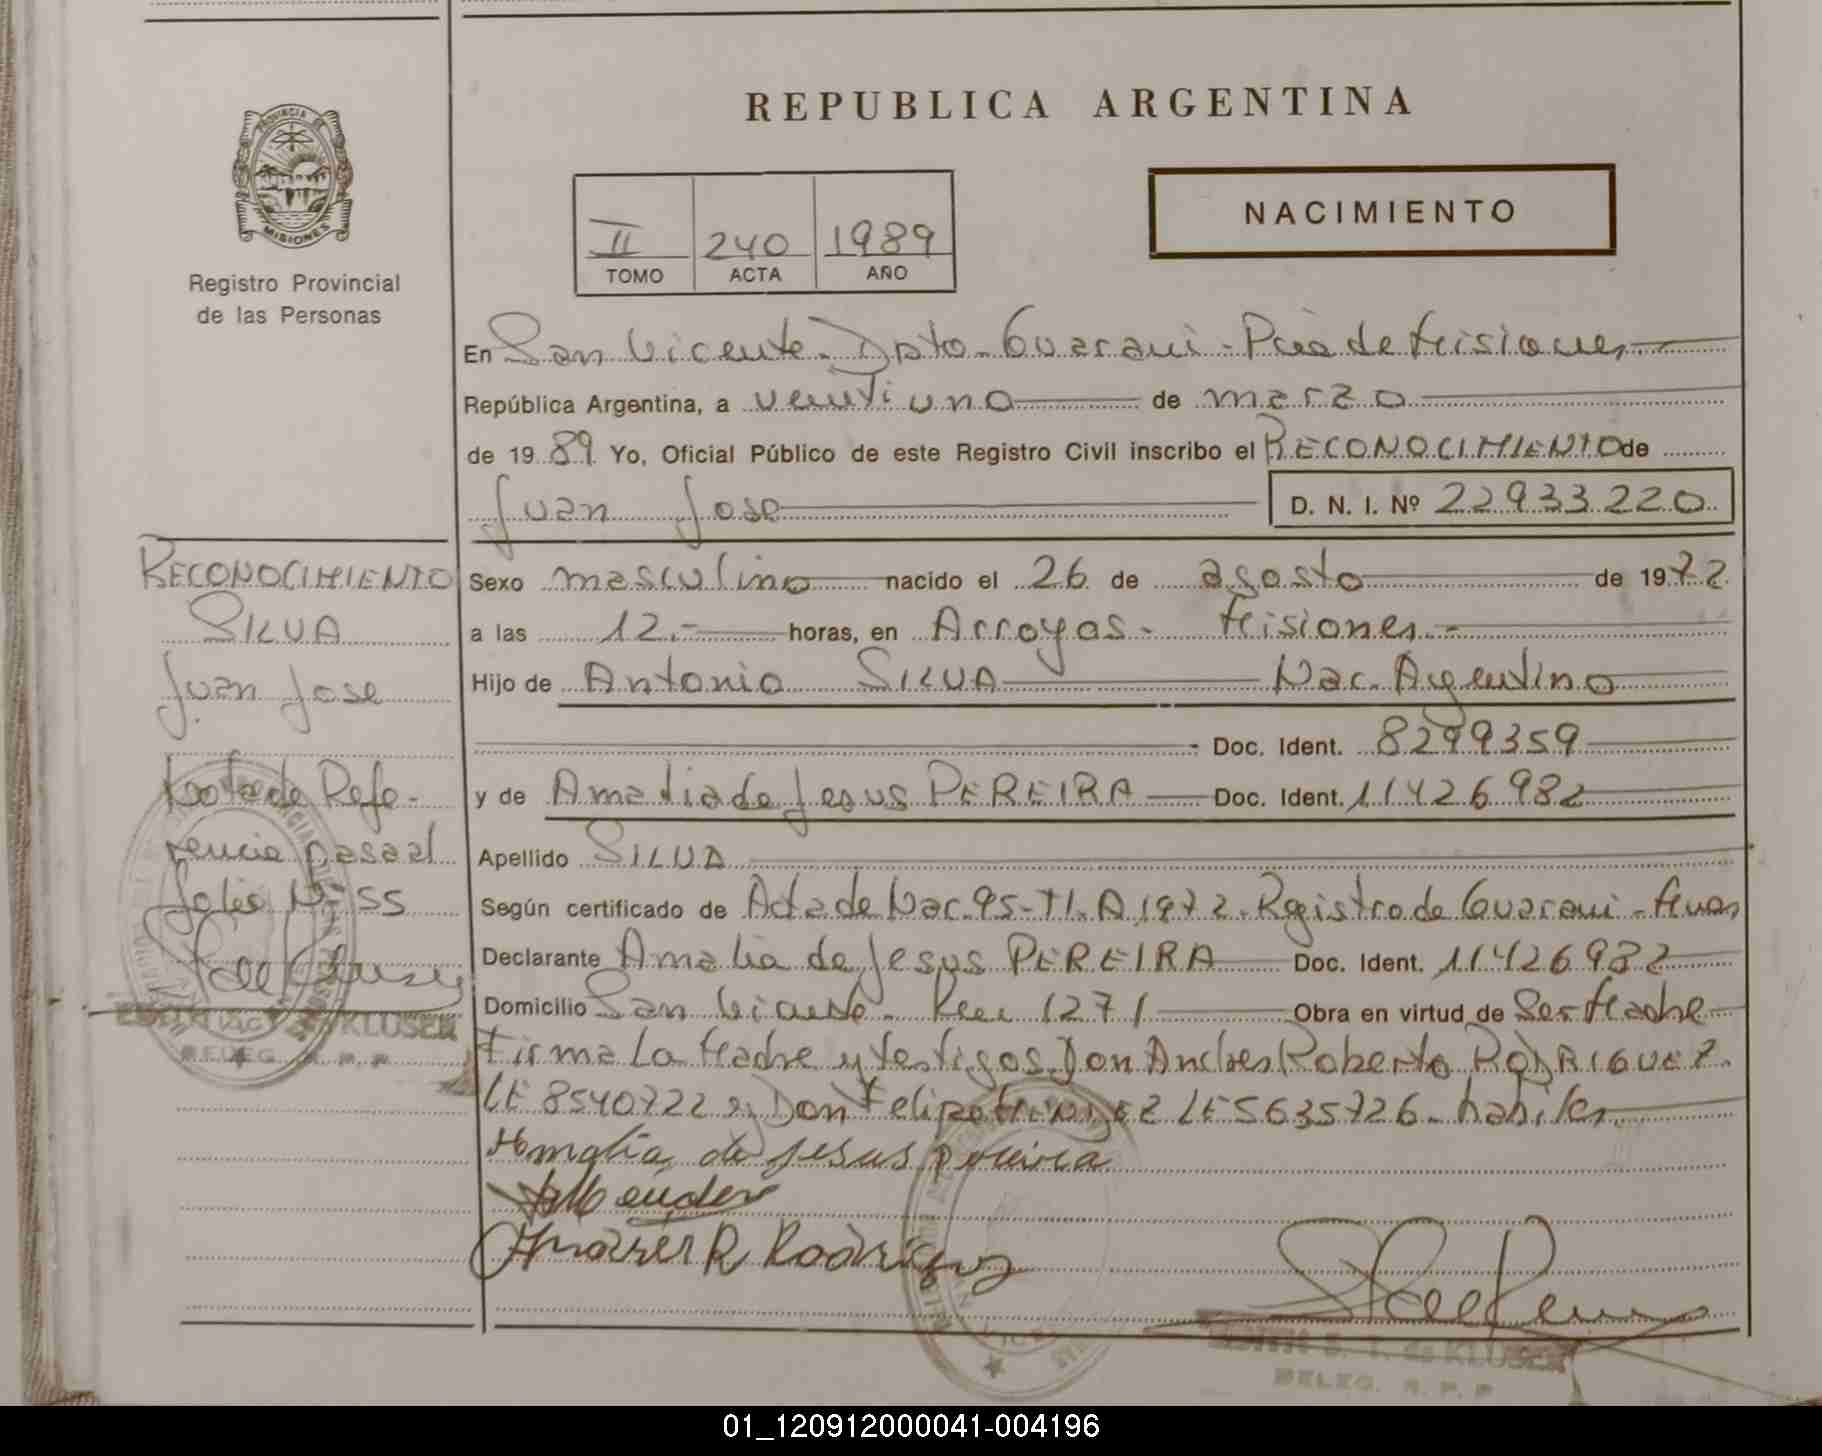 REPUBLICA ARGENTINA
PROVINCIA DE
MISIONES
Registro Provincial
de las Personas
II 240 1989
TOMO ACTA AÑO
NACIMIENTO
En San Vicente. Dpto. Guarani - Pcia de Misiones
República Argentina, a veintiuno de marzo
de 1989 Yo, Oficial Público de este Registro Civil inscribo el RECONOCIMIENTO de
Juan Jose D. N. I. Nº 22933220
Sexo masculino nacido el 26 de agosto de 1972
a las 12.- horas, en Arroyos - Misiones.-
Hijo de Antonio SILVA Nac. Argentino
Doc. Ident. 8299359
y de Amalia de Jesus PEREIRA Doc. Ident. 11426982
Apellido SILVA
Según certificado de Acta de Nac. 95-T I. A 1972. Registro de Guarani -
Declarante Amalia de Jesus PEREIRA Doc. Ident. 11426982
Domicilio San Vicente. 1271 Obra en virtud de Ser Madre
Firma La Madre y testigos Don Andres Roberto RODRIGUEZ.
LE 8540722 y Don Felipe MENDEZ LE 5635726. habiles
Amalia de Jesus pereira
Mendez
Andres R Rodriguez
S. T. de KLUSER
DELEG. R. P. P
RECONOCIMIENTO
SILVA
Juan Jose
Nota de Refe-
rencia pasa al
folio Nº 155
KLUSER
DELEG. R. P. P
01_120912000041-004196